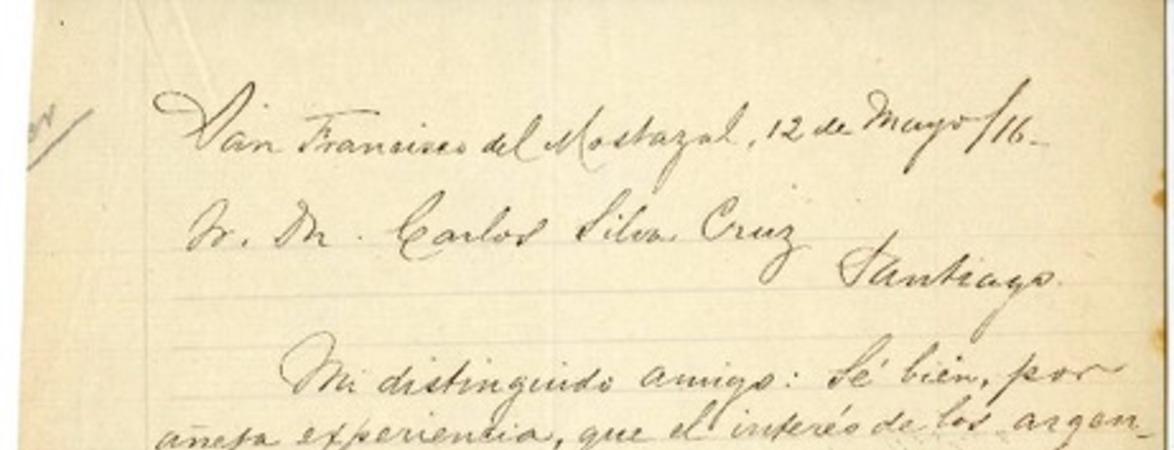 San Francisco del Mostazal, 12 de Mayo/16-
Sr. Dn. Carlos Silva Cruz
Santiago.
Mi distinguido amigo: Sé bien, por
añeja experiencia, que el interés de los argen-